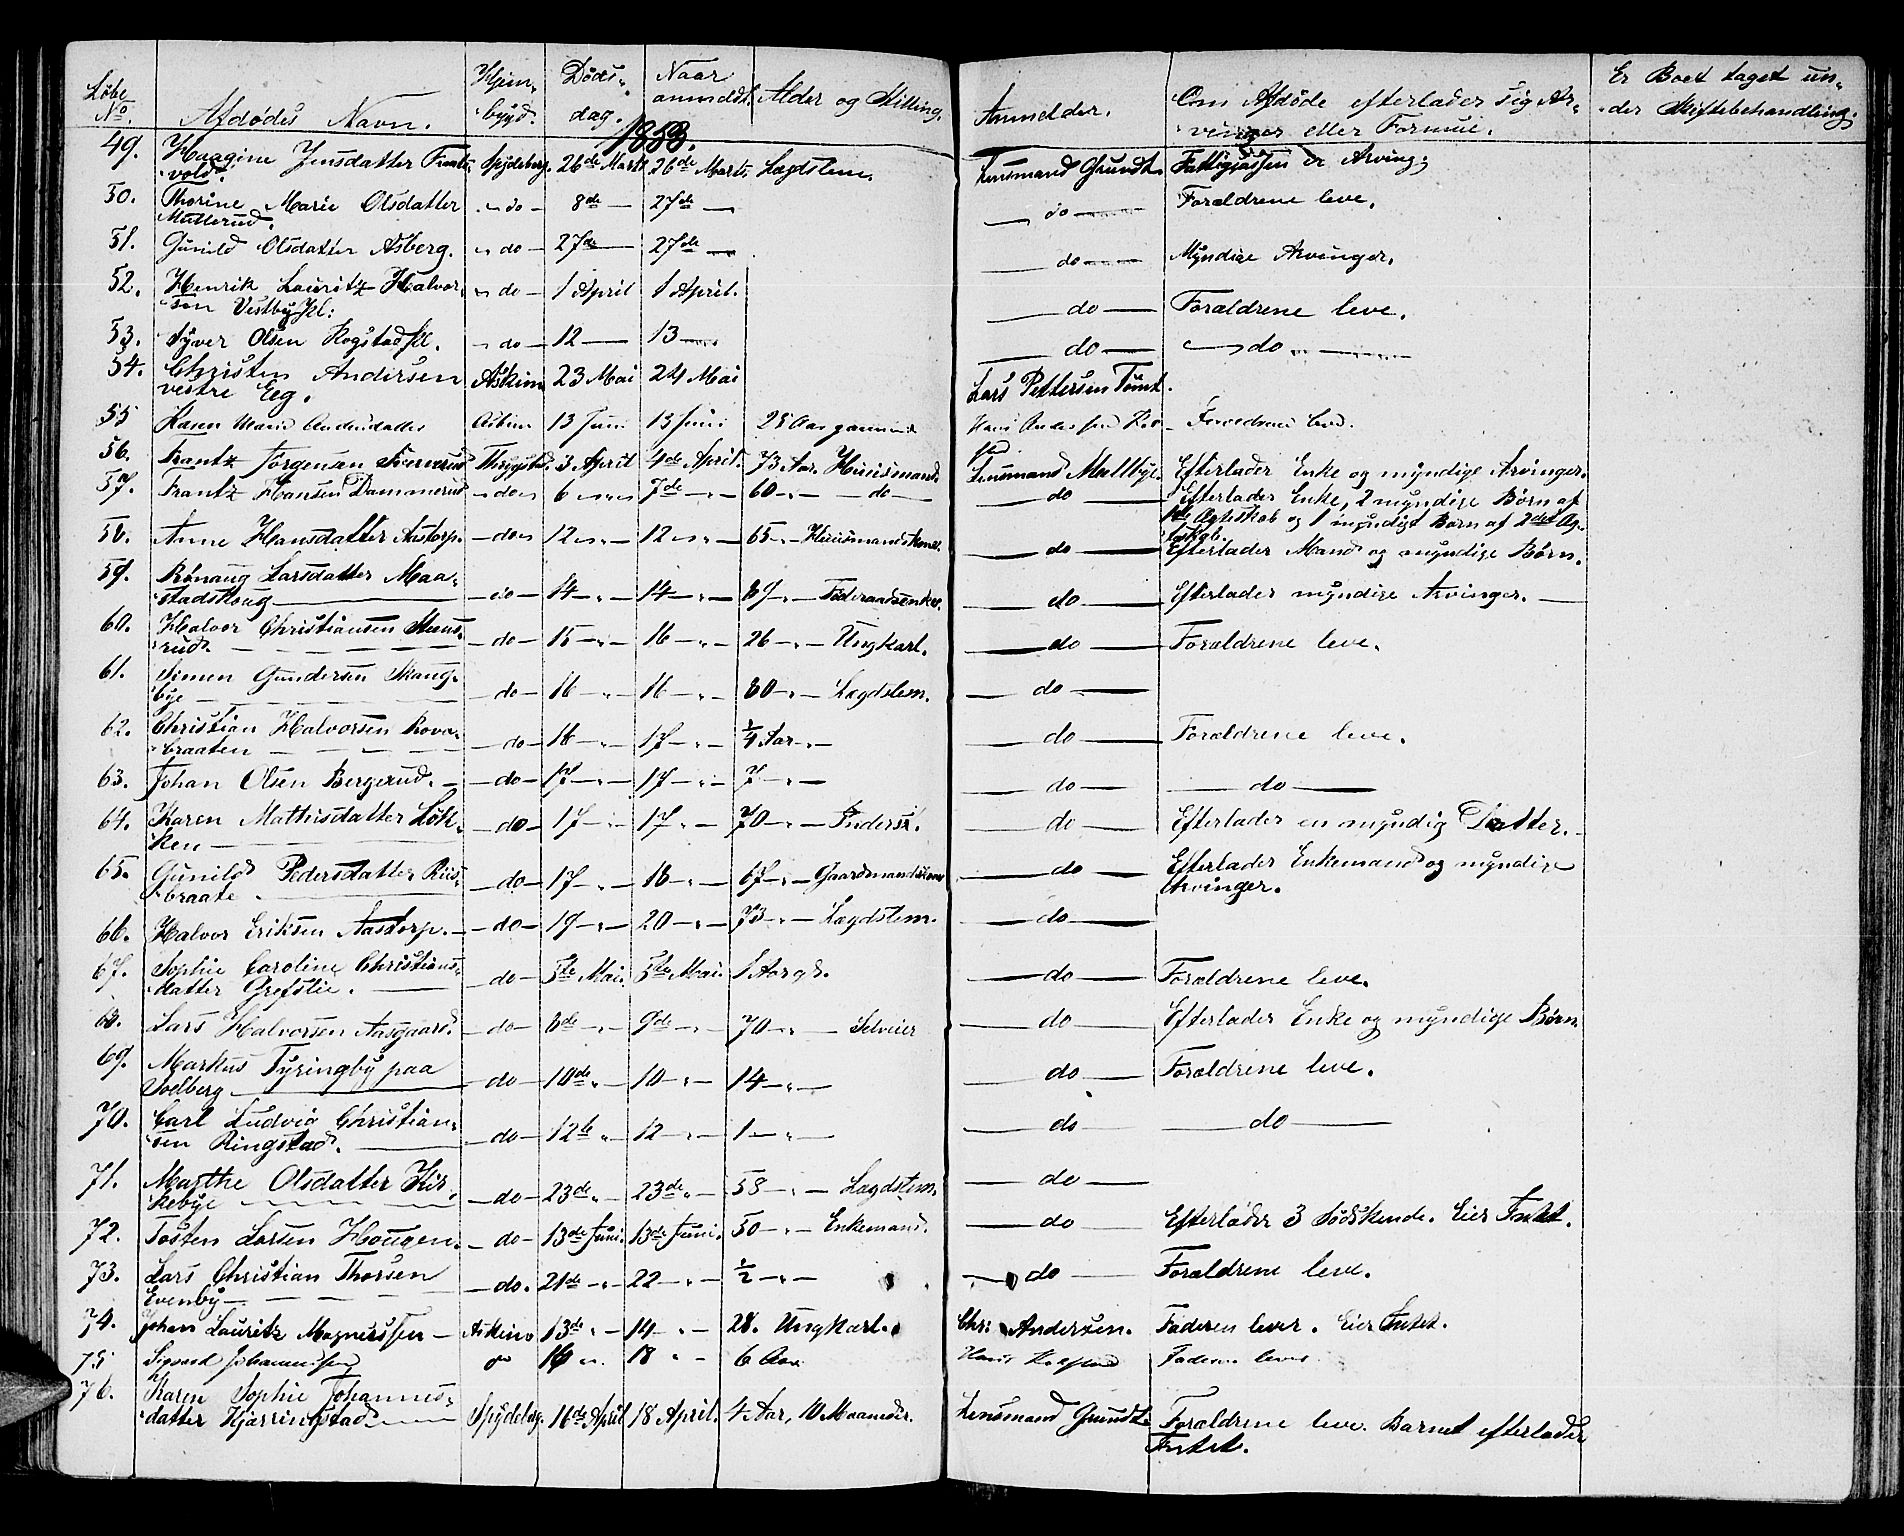 Løbe No. Afdødes Navn. Hjem-bygd. Døds-dag. Naar anmeldt. Alder og Stilling. Anmelder. Om Afdøde efterlader sig Ar-vinger eller Formue. Er Boet taget un-der Skiftebehandling.
1858.
49. Jensdatter Spydeberg. 26de Marts 26de Marts. Lægdslem. Lensmand Grundt. Fattigkassen er Arving.
50. Thorine Marie Olsdatter — do — 8de — 27de — — do — Forældrene leve.
Mellerud.
51. Gunild Olsdatter Asberg. — do — 27de — 27de — — do — Myndige Arvinger.
52. Henrik Lauritz Halvor- — do — 1 April 1 April. — do — Forældrene leve.
sen Vestby Pl:
53. Syver Olsen Rogstad Pl. — do — 12 — 13 — — do — — do —
54. Christen Andersen Askim 23 Mai 24 Mai Lars Pettersen Tomt.
vestre Eeg.
55 Karen Marie Andersdatter Askim 13 Juni 13 Juni 25 Aar Hans Andersen Forældrene leve.
56. Frantz Jørgensen Thrygstad. 3 April 4de April. 73 Aar. Huusmand Lensmand Maltbye. Efterlader Enke og myndige Arvinger.
57. Frantz Hansen Dammerud — do — 6 — 7de — 60 — — do — — do — Efterlader Enke, 2 myndige Børn af
1ste Ægteskab og 1 myndigt Barn af 2det Æg-
teskab.
58. Anne Hansdatter Aastorp. — do — 12 — 12 — 65 — Huusmandskone. — do — Efterlader Mand og myndige Børn.
59. Rønaug Larsdatter Maa- — do — 14 — 14 — 89 — Føderaadsenke. — do — Efterlader myndige Arvinger. —
stadskoug —
60. Halvor Christiansen — do — 15 — 16 — 26 — Ungkarl. — do — Forældrene leve.
rud. —
61. Simen Gundersen Skaug- — do — 16 — 16 — 80 — Lægdslem. — do —
bye —
62. Christian Halvorsen — do — 16 — 17 — ¼ Aar — — do — Forældrene leve.
braaten —
63. Johan Olsen Bergerud. — — do — 17 — 17 — 7 — — do — — do —
64. Karen Mathisdatter Løk- — do — 17 — 17 — 70 — Inderst. — do — Efterlader en myndig Datter. —
ken —
65. Gunild Pedersdatter Riis- — do — 17 — 18 — 67 — Gaardmandskone — do — Efterlader Enkemand og myndige
braate — Arvinger.
66. Halvor Eriksen Aastorp. — — do — 19 — 20 — 73 — Lægdslem. — do —
67. Sophie Caroline Christians- — do — 5te Mai. 5te Mai. 1 Aar gl. — do — Forældrene leve.
datter Grefslie. —
68. Lars Halvorsen Aasgaard. — do — 8de — 9de — 70 — Selveier — do — Efterlader Enke og myndige Børn.
69. Markus Tyringby paa — do — 10de — 10 — 14 — — do — Forældrene leve.
Solberg —
70. Carl Ludvig Christian- — do — 12te — 12 — 1 — — do — — do —
sen Ringstad. —
71. Marthe Olsdatter Kir- — do — 23de — 23de — 58 — Lægdslem. — do —
kebye —
72. Tosten Larsen Hougen. — do — 13de Juni. 13de Juni. 50 — Enkemand. — do — Efterlader 3 Sødskende. Eier Intet.
73. Lars Christian Thorsen — do. 21de — 22 — ½ — — do — Forældrene leve.
Evenby —
74. Johan Lauritz Magnussen — Askim 13de — 14 — 28. Ungkarl. Chr: Andersen. Faderen lever. Eier Intet.
75 Sigvard Johannesen do 16 18 — 6 Aar Hans Faderen lever
76. Karen Sophie Johannes- Spydeberg. 16de April 18 April. 4 Aar, 10 Maaneder. Lensmand Grundt Forældrene leve. Barnet efterlader
datter Kjærringstad — Intet.